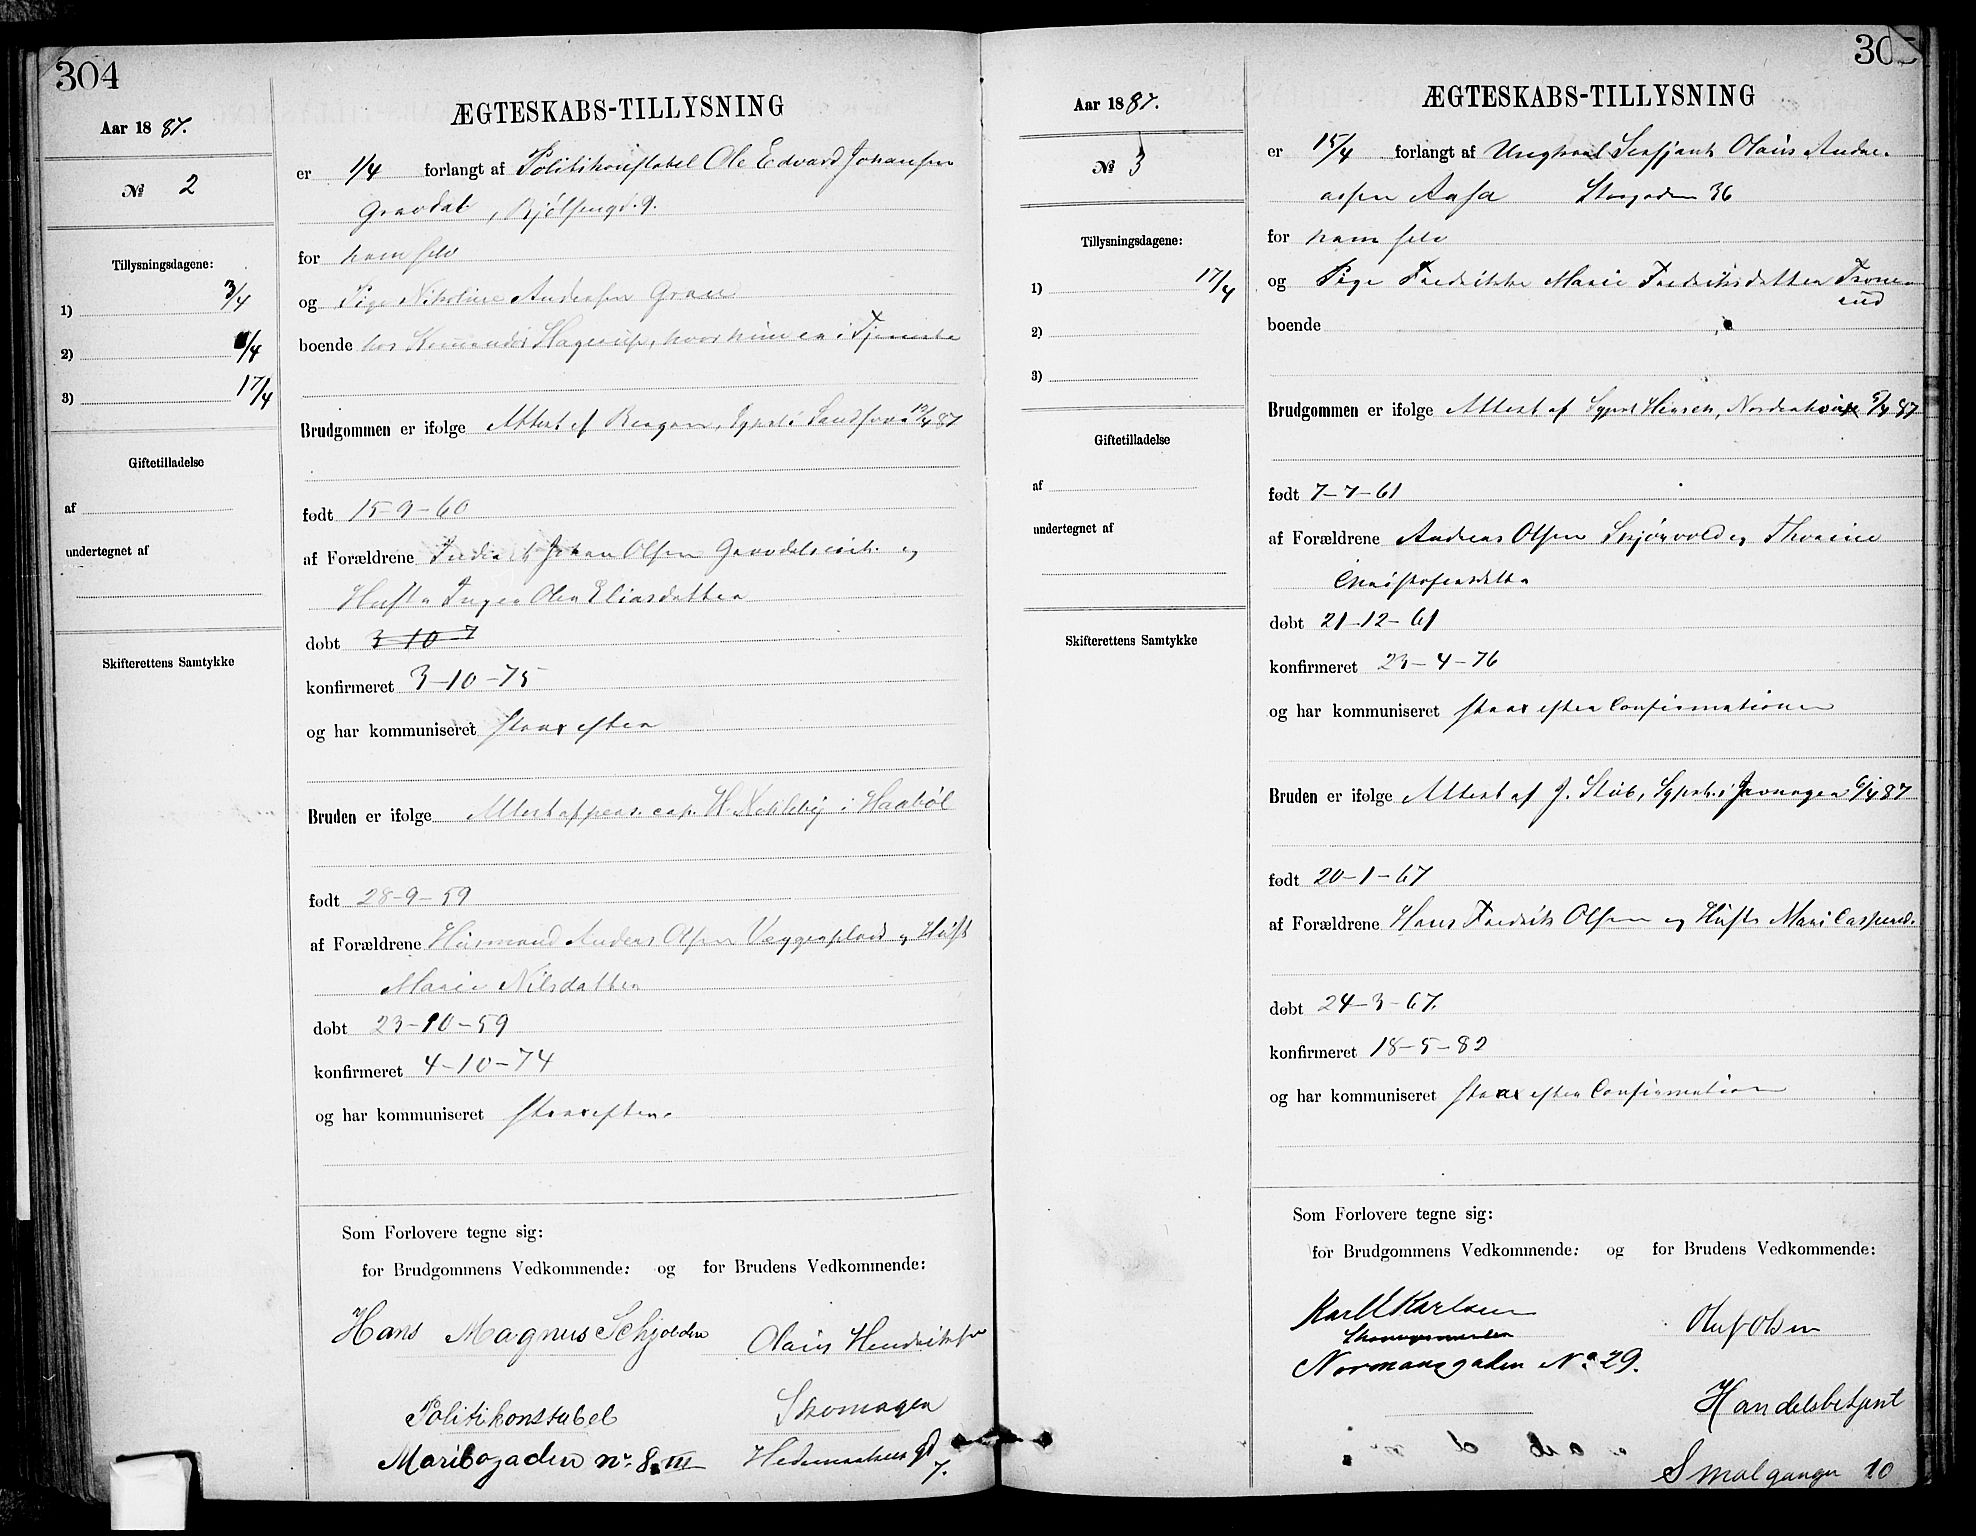 304
Aar 1887.
№ 2
Tillysningsdagene:
1) 3/4
2) /4
3) 17/4
Giftetilladelse
af
undertegnet af
Skifterettens Samtykke
ÆGTESKABS-TILLYSNING
er 1/4 forlangt af Politikonstabel Ole Edvard Johansen
Gravdal, Bjølsengd. 9.
for ham selv
og Pige Nikoline Andersen Graue
boende hos Hagerup, hvor hun er i Tjeneste
Brudgommen er ifølge Attest af Sgprst i 87
født 15-9-60
af Forældrene Johan Olsen og
Hustr Inger Olea Eliasdatter
døbt 3-10-7
konfirmeret 3-10-75
og har kommuniseret strax efter
Bruden er ifølge Attest af pers. cap. H. i Haabøl
født 28-9-59
af Forældrene Husmand Anders Olsen og Hust
Marie Nilsdatter
døbt 23-10-59
konfirmeret 4-10-74
og har kommuniseret strax efter.
Som Forlovere tegne sig:
for Brudgommens Vedkommende: og for Brudens Vedkommende:
Hans Magnus Schjolden Olaus Hendriksen
Politikonstabel Skomager
Maribogaden nr. 8 III Hedemarkens gd
7.
305
Aar 1887.
№ 3
Tillysningsdagene:
1) 17/4
2)
3)
Giftetilladelse
af
undertegnet af
Skifterettens Samtykke
ÆGTESKABS-TILLYSNING
er 15/4 forlangt af Ungkarl Sersjant Olaus Andre-
assen Aasa Storgaden 36
for ham selv
og Pige Fredrikke Marie Fredriksdatter Trone-
rud
boende
Brudgommen er ifølge Attest af Sgprst 87
født 7-7-61
af Forældrene Andreas Olsen Skjørvold og Thorine
Christofersdatter
døbt 21-12-61
konfirmeret 23-4-76
og har kommuniseret strax efter Confirmationen
Bruden er ifølge Attest af J. Stub, Sgprst. i Jevnager 6/4 87
født 20-1-67
af Forældrene Hans Fredrik Olsen og Hustr Mari Caspersd.
døbt 24-3-67.
konfirmeret 18-5-82
og har kommuniseret strax efter Confirmation
Som Forlovere tegne sig:
for Brudgommens Vedkommende: og for Brudens Vedkommende:
Karl Karlsen Oluf Olsen
Normansgaden No 29.
Handelsbetjent
Smalgangen 10